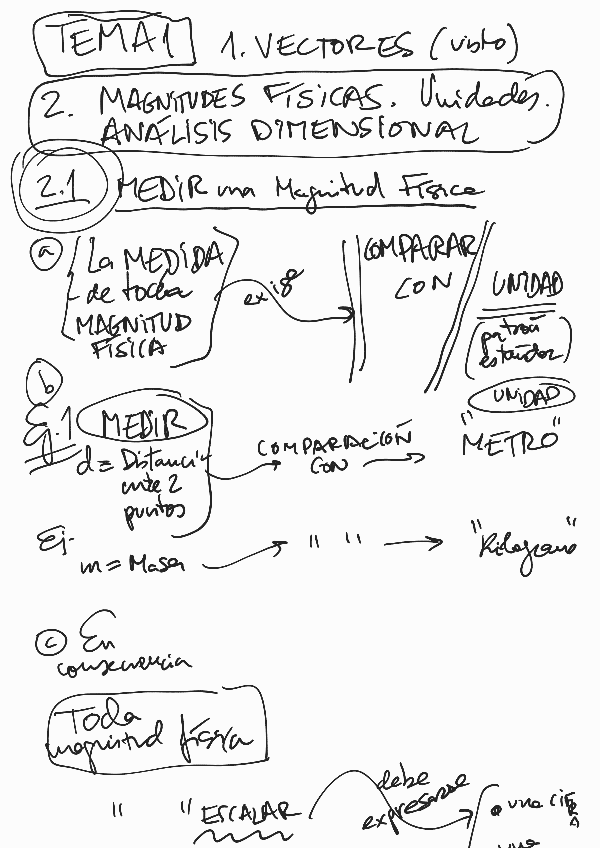 TEMA 1 1. VECTORES (visto)
2. MAGNITUDES FÍSICAS. Unidades.
ANÁLISIS DIMENSIONAL
2.1 MEDIR una Magnitud Física
a La MEDIDA de toda MAGNITUD FÍSICA exige COMPARAR CON UNIDAD
(patrón estándar)
b
UNIDAD
Ej.1 MEDIR COMPARACIÓN CON "METRO"
d = Distancia
ente 2
puntos
Ej.
m = Masa " " "Kilogramo"
c En
consecuencia
Toda
magnitud física
" " ESCALAR debe expresarse • una CIFRA
una